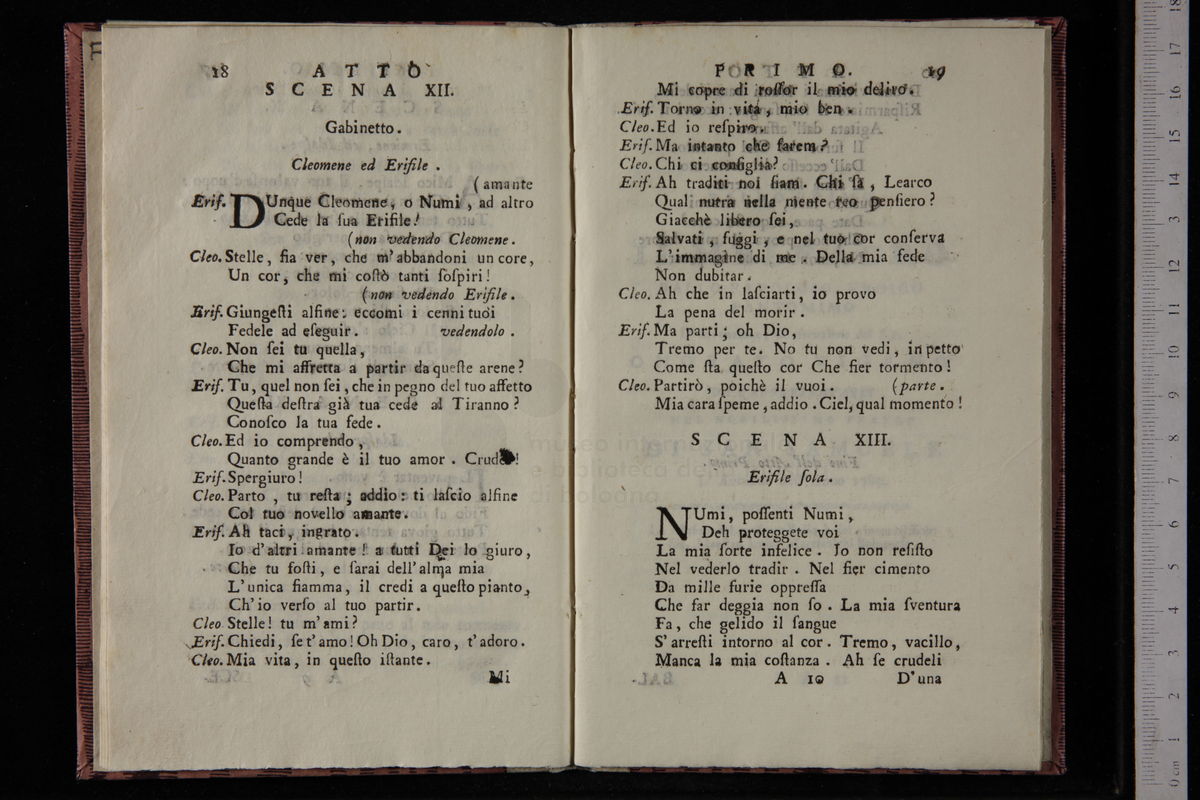 18 ATTO
SCENA XII.
Gabinetto.
Cleomene ed Erifile.
(amante
Erif. DUnque Cleomene, o Numi, ad altro
Cede la ſua Erifile!
(non vedendo Cleomene.
Cleo. Stelle, fia ver, che m'abbandoni un core,
Un cor, che mi coſtò tanti ſoſpiri!
(non vedendo Erifile.
Erif. Giungeſti alfine: eccomi i cenni tuoi
Fedele ad eſeguir. vedendolo.
Cleo. Non ſei tu quella,
Che mi affretta a partir da queſte arene?
Erif. Tu, quel non ſei, che in pegno del tuo affetto
Queſta deſtra già tua cede al Tiranno?
Conoſco la tua fede.
Cleo. Ed io comprendo,
Quanto grande è il tuo amor. Crudel!
Erif. Spergiuro!
Cleo. Parto, tu reſta; addio: ti laſcio alfine
Col tuo novello amante.
Erif. Ah taci, ingrato.
Io d'altri amante! a tutti Dei lo giuro,
Che tu foſti, e ſarai dell'alma mia
L'unica fiamma, il credi a queſto pianto,
Ch'io verſo al tuo partir.
Cleo Stelle! tu m'ami?
Erif. Chiedi, ſe t'amo! Oh Dio, caro, t'adoro.
Cleo. Mia vita, in queſto iſtante.
Mi
PRIMO. 19
Mi copre di roſſor il mio deliro.
Erif. Torno in vita, mio ben.
Cleo. Ed io reſpiro.
Erif. Ma intanto che farem?
Cleo. Chi ci conſiglia?
Erif. Ah traditi noi ſiam. Chi ſà, Learco
Qual nutra nella mente reo penſiero?
Giacchè libero ſei,
Salvati, fuggi, e nel tuo cor conſerva
L'immagine di me. Della mia fede
Non dubitar.
Cleo. Ah che in laſciarti, io provo
La pena del morir.
Erif. Ma parti; oh Dio,
Tremo per te. No tu non vedi, in petto
Come ſta queſto cor Che fier tormento!
Cleo. Partirò, poichè il vuoi. (parte.
Mia cara ſpeme, addio. Ciel, qual momento!
SCENA XIII.
Erifile ſola.
NUmi, poſſenti Numi,
Deh proteggete voi
La mia ſorte infelice. Io non reſiſto
Nel vederlo tradir. Nel fier cimento
Da mille furie oppreſſa
Che far deggia non ſo. La mia ſventura
Fa, che gelido il ſangue
S'arreſti intorno al cor. Tremo, vacillo,
Manca la mia coſtanza. Ah ſe crudeli
A 10 D'una